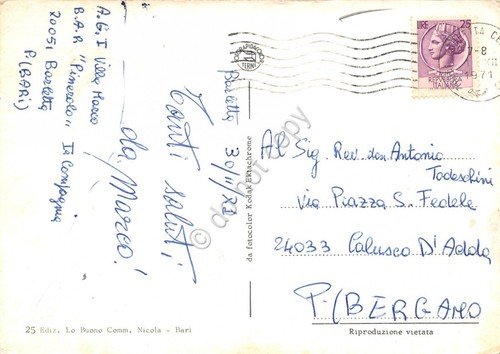 A.G. I Villa Marco
B.A.R. "Pinerolo" II Compagnia
70051 Barletta
P.(BARI)
Barletta 30/11/71
Tanti saluti
da, Marco!
Al Sig Rev. don Antonio
Todeschini
Via Piazza S. Fedele
24033 Calusco D'Adda
P.(BERGAMO
25 Ediz. Lo Buono Comm. Nicola - Bari
da fotocolor Kodak Ektachrome
Riproduzione vietata
FOTORAPIDACOLOR
TERNI
25
ITALIANE
7-8
1971
do not copy